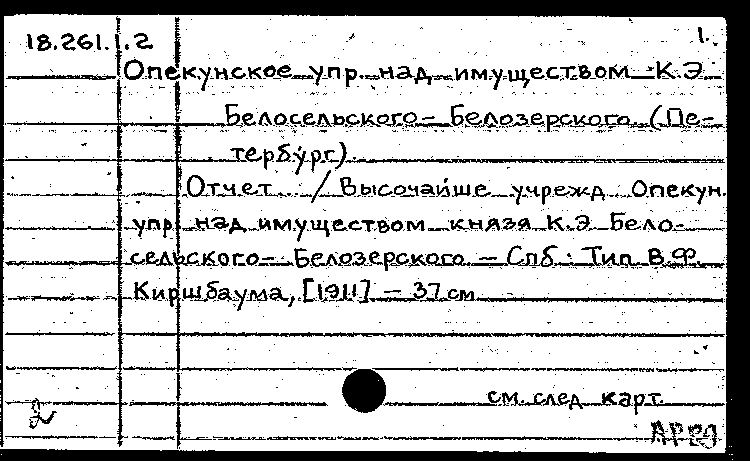 18.261.1.2 1.
Опекунское упр. над имуществом К.Э.
Белосельского-Белозерского (Пе-
тербург).
Отчет... / Высочайше учрежд. Опекун.
упр. над имуществом князя К.Э. Бело-
сельского-Белозерского. — Спб.: Тип. В.Ф.
Киршбаума, [1911]. — 37 см.
см. след. карт.
2